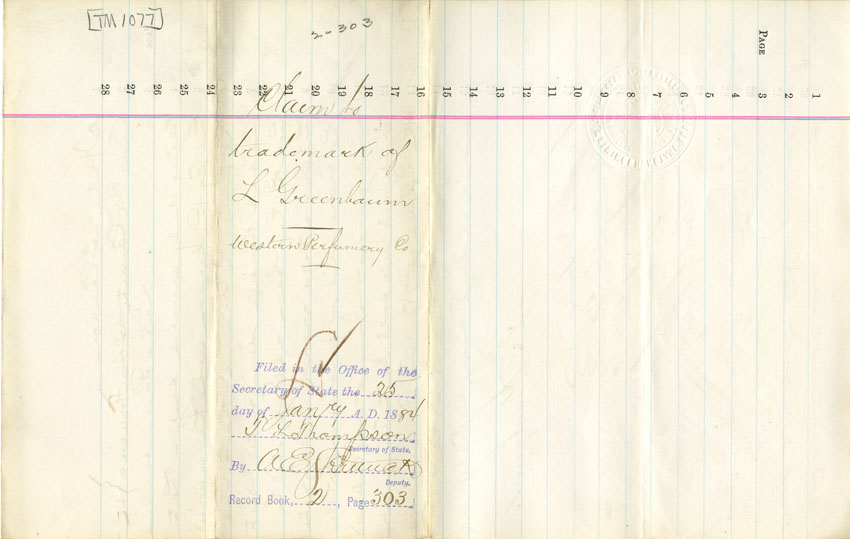 [TM 1077]
2-303
PAGE
1 2 3 4 5 6 7 8 9 10 11 12 13 14 15 16 17 18 19 20 21 22 23 24 25 26 27 28
Claim to
trademark of
L Greenbaum
Western Perfumery Co
Filed in the Office of the
Secretary of State the 25
day of Jan'ry A. D. 1884
T L Thompson
Secretary of State.
By
Deputy.
Record Book, 2, Page 303